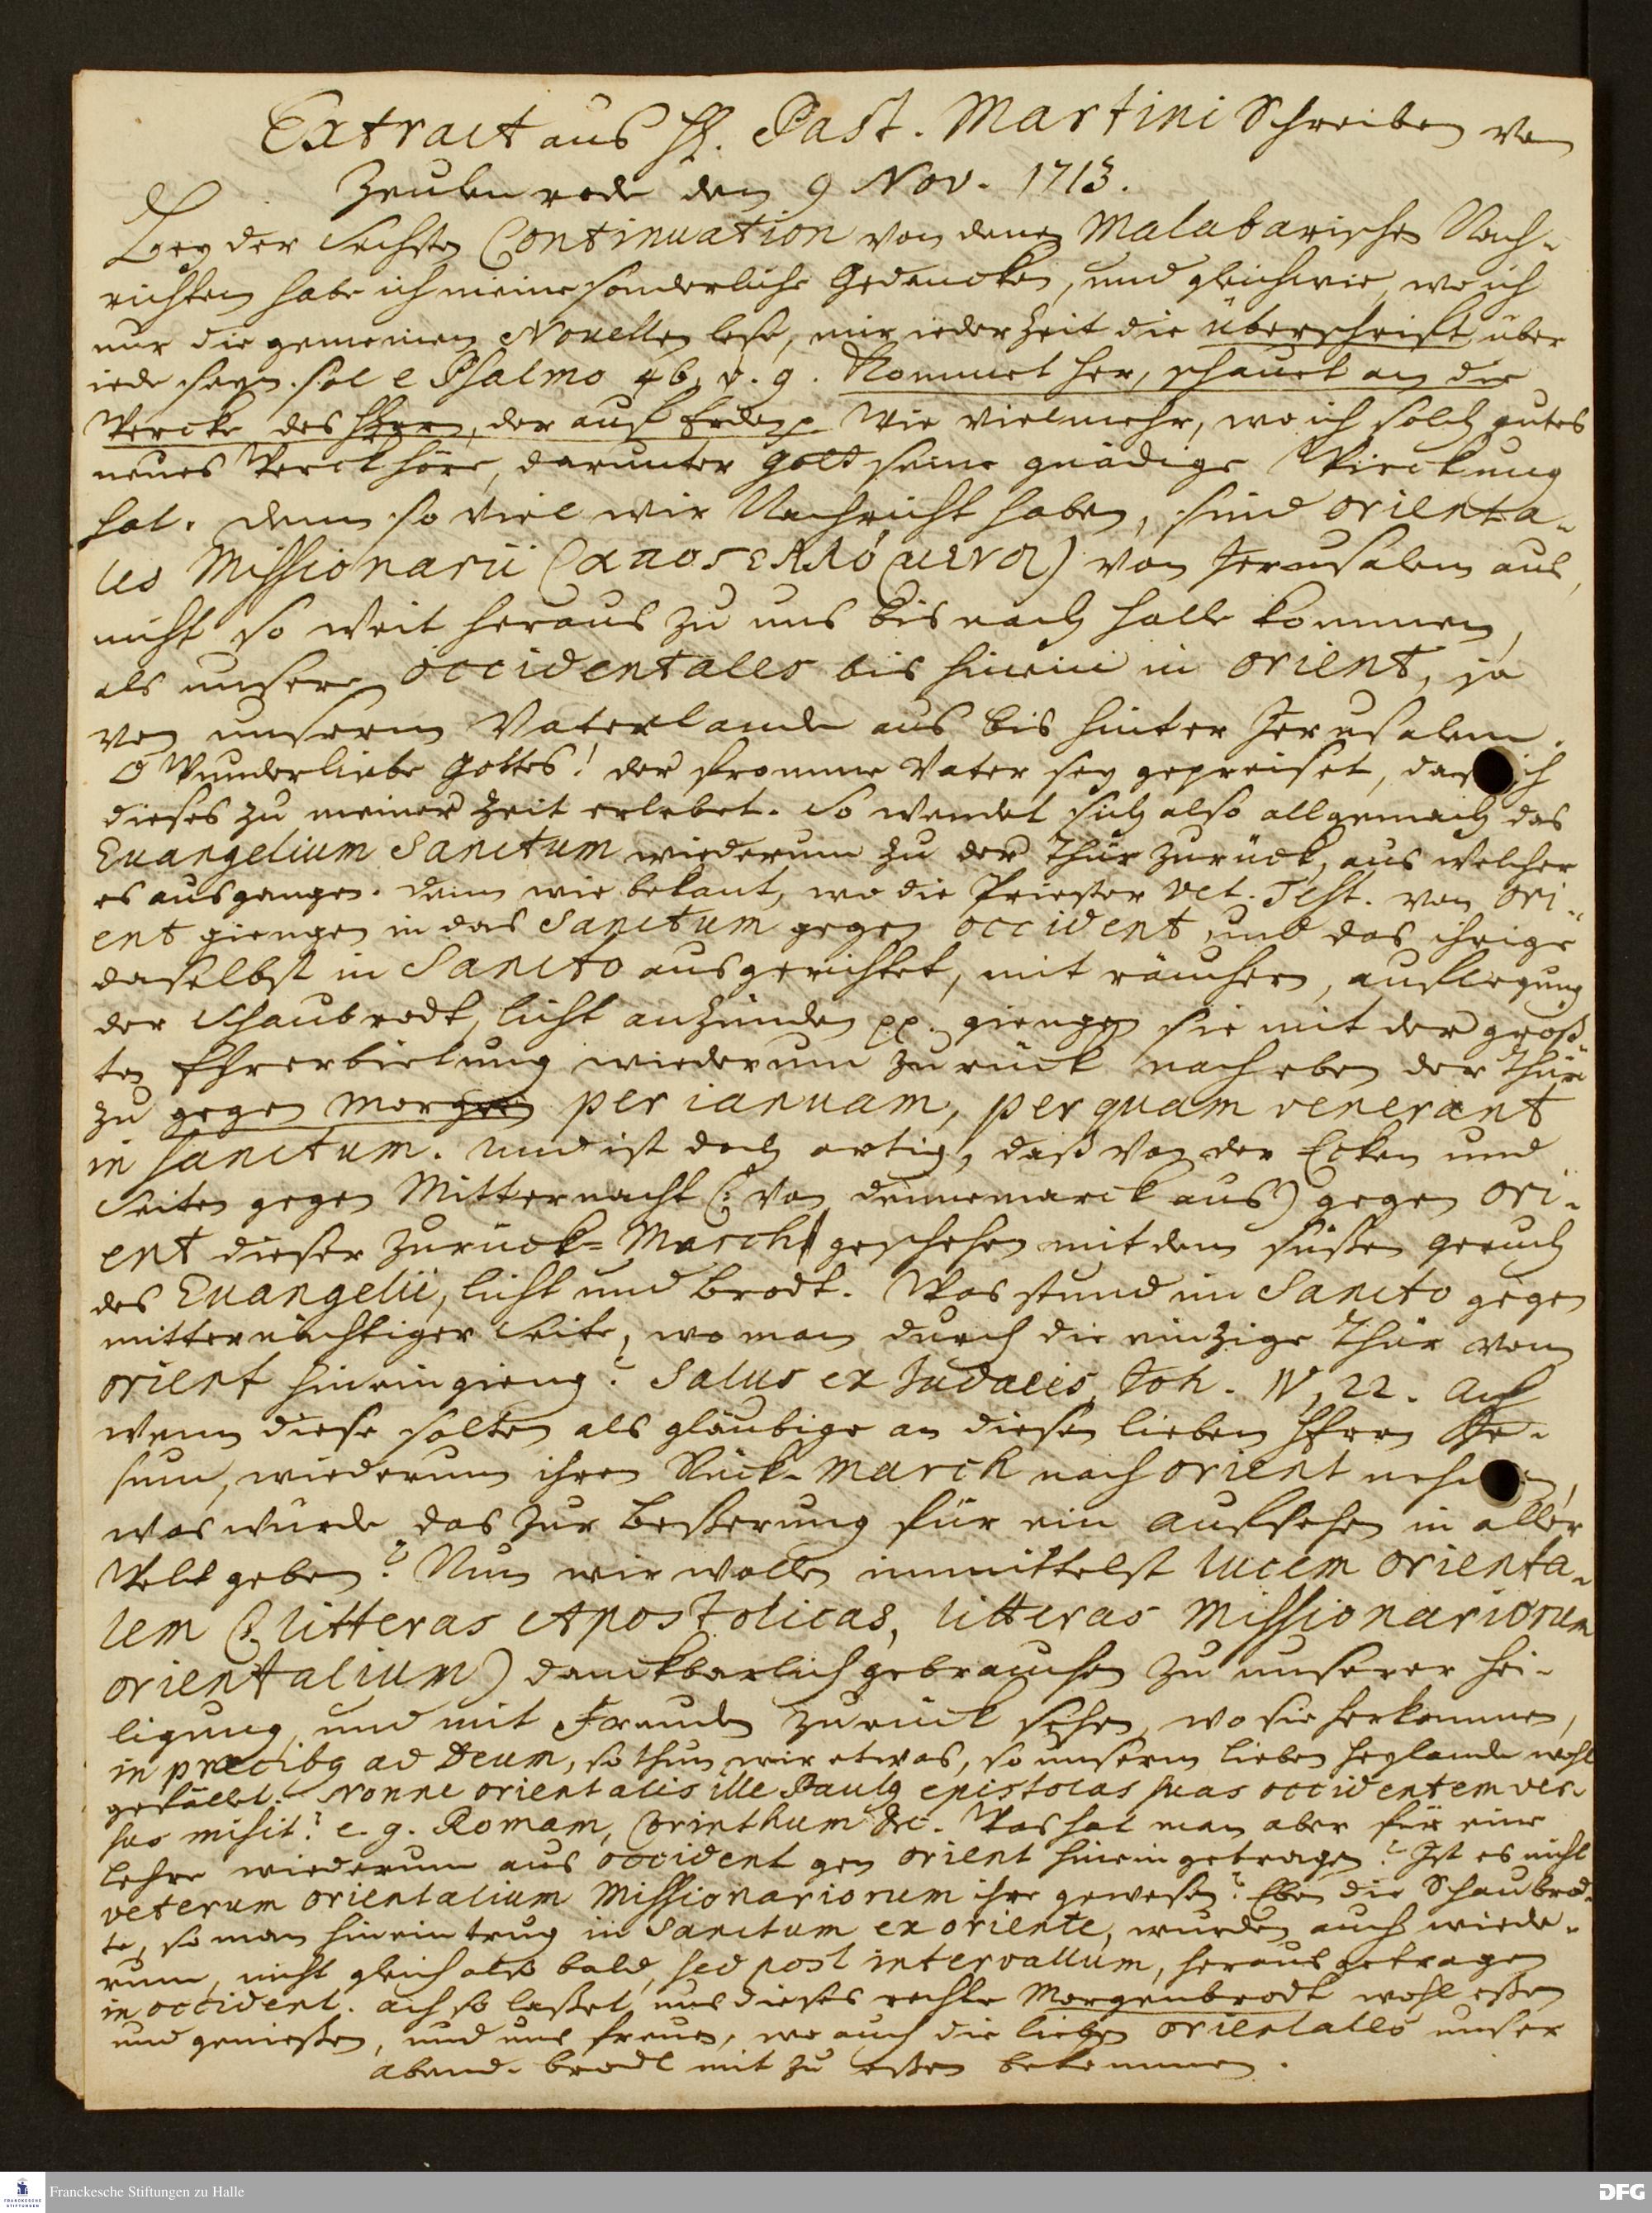 Extract aus H. Past. Martini Schreiben von
Zeulenrode den 9 Nov. 1713.
Bey der Sechsten Continuation von denen Malabarischen Nach-
richten habe ich meine sonderliche Gedancken, und gleichwie, wo ich
nur die gemeinen Novellen lese, mir iederzeit die überschrift über
iede seyn sol e Psalmo 46, v. 9. Kommet her, schauet an die
Wercke des HErrn, der auf Erden p. Wie vielmehr, wo ich solch gutes
neues Werck höre, darunter Gott seine gnädige Wirckung
hat. denn so viel wir Nachricht haben, sind orienta-
les Missionarii (αποστελλόμενοι) von Jerusalem aus,
nicht so weit heraus zu uns bis nach Halle kommen,
als unsere occidentales bis hinein in orient, ja
von unserm Vaterlande aus bis hinter Jerusalem.
O Wunderliebe Gottes! der fromme Vater sey gepreiset, daß ich
dieses zu meiner Zeit erlebet. So wendet sich also allgemach das
Evangelium Sanctum wiederum zu der Thür zurück, aus welcher
es ausgangen. denn wie bekant, wo die Priester Vet. Test. von Ori-
ent giengen in das Sanctum gegen occident und das ihrige
daselbst in Sancto ausgerichtet, mit räuchern, auflegung
der Schaubrodt, licht anzünden pp. giengen sie mit der größ-
ten Ehrerbietung wiederum zurück nach eben der Thür
zu gegen morgen per ianuam, per quam venerant
in sanctum. Und ist doch artig, daß von der Ecken und
Seiten gegen Mitternacht (: von dennemarck aus) gegen Ori-
ent dieser Zurück-March geschehen mit dem süßen geruch
des Evangelii, licht und brodt. Was stund im Sancto gegen
mitternächtiger Seite, wo man durch die einzige Thür von
orient hineingieng? Salus ex Judaeis, Joh. IV, 22. Ach
wenn diese solten als gläubige an diesen lieben HErrn JE-
sum, wiederum ihren Rück-March nach orient nehmen,
was würde das zur beßerung für ein aufsehen in aller
Welt geben? Nun wir wollen immittelst lucem orienta-
lem (: litteras Apostolicas, litteras Missionariorum
orientalium) danckbarlich gebrauchen zu unserer Hei-
ligung, und mit Freuden zurück sehen, wo sie herkommen,
in precibq ad Deum, so thun wir etwas, so unserm lieben Heylande wohl
gefället. Nonne orientalis ille Paulq epistolas suas occidentem ver-
sus misit? e. g. Romam, Corinthum &c. Was hat man aber für eine
Lehre wiederum aus occident gen orient hinein getragen? Ist es nicht
veterum orientalium Missionariorum ihre gewesen? Eben die Schaubrod-
te, so man hinein trug in Sanctum ex oriente, wurden auch wiede-
rum, nicht gleich also bald, sed post intervallum, heraus getragen
in occident. ach so laßet uns dieses rechte Morgenbrodt wohl eßen
und genießen, und uns freuen, wo auch die lieben orientales unser
abend-brodt mit zu eßen bekommen.
Franckesche Stiftungen zu Halle
DFG